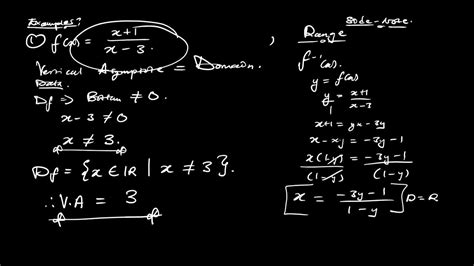 Examples:
① f(x) = x+1 / x-3 ,
Vertical Asymptote = Domain.
Df => Bottom ≠ 0.
x-3 ≠ 0
x ≠ 3.
Df = {x ∈ IR | x ≠ 3}.
∴ V.A = 3
Side-Note.
Range
f⁻¹(x)
y = f(x)
y/1 = x+1 / x-3
x+1 = yx-3y
x-xy = -3y-1
x(1-y)/(1-y) = -3y-1/(1-y)
[x = -3y-1 / 1-y] D=R